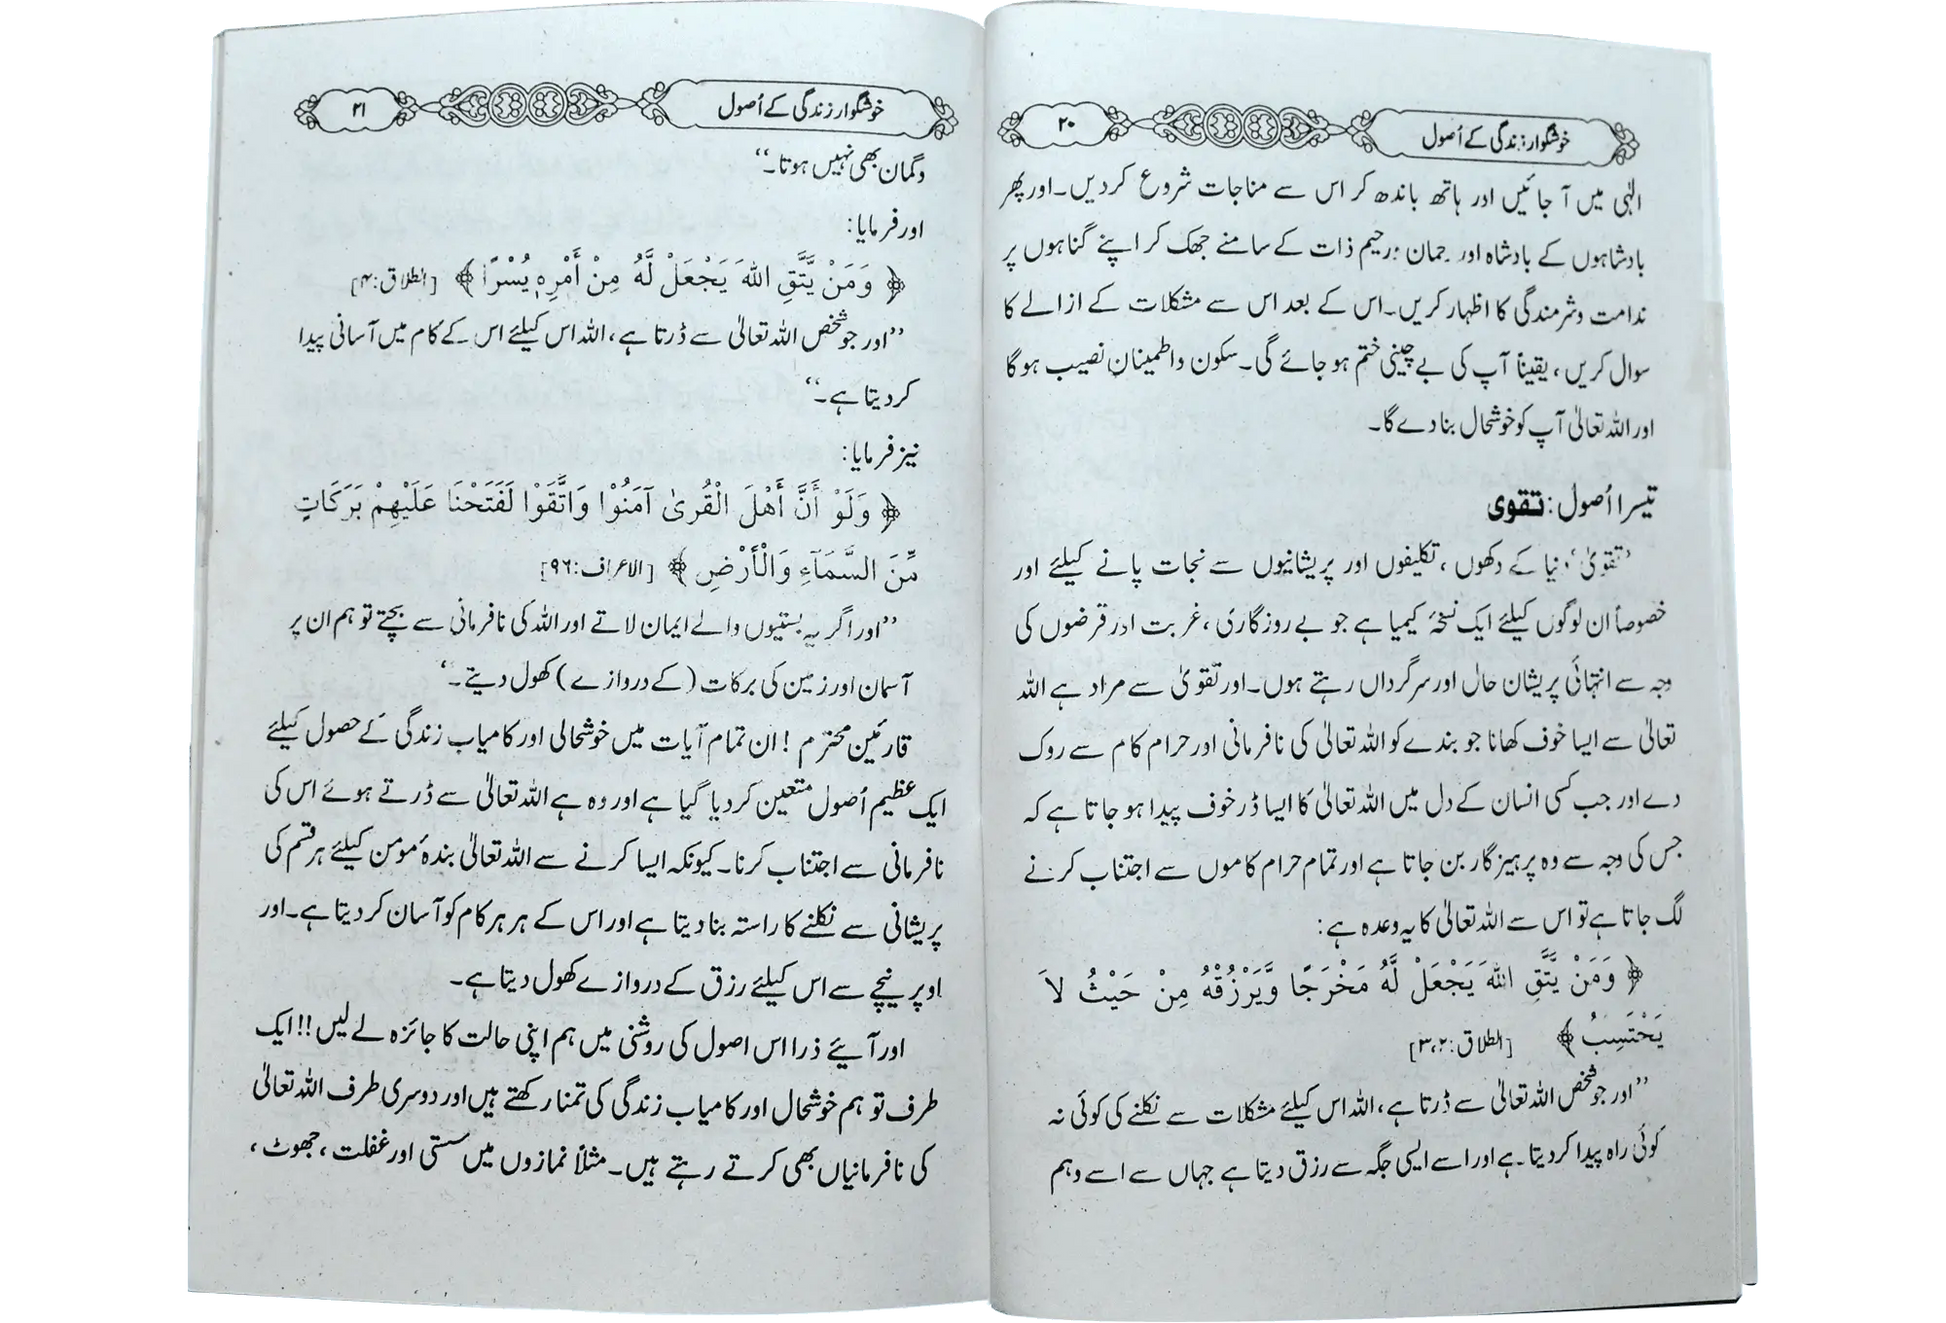 خوشگوار زندگی کے اُصول
۲۰
الٰہی میں آ جائیں اور ہاتھ باندھ کر اس سے مناجات شروع کردیں۔اور پھر
بادشاہوں کے بادشاہ اور رحمان ورحیم ذات کے سامنے جھک کر اپنے گناہوں پر
ندامت وشرمندگی کا اظہار کریں۔اس کے بعد اس سے مشکلات کے ازالے کا
سوال کریں ، یقیناً آپ کی بے چینی ختم ہو جائے گی۔سکون واطمینان نصیب ہو گا
اور اللہ تعالیٰ آپ کو خوشحال بنا دے گا۔
تیسرا اُصول : تقوی
’تقویٰ‘ دنیا کے دکھوں ، تکلیفوں اور پریشانیوں سے نجات پانے کیلئے اور
خصوصاً ان لوگوں کیلئے ایک نسخۂ کیمیا ہے جو بے روزگاری ، غربت اور قرضوں کی
وجہ سے انتہائی پریشان حال اور سرگرداں رہتے ہوں۔اور تقویٰ سے مراد ہے اللہ
تعالیٰ سے ایسا خوف کھانا جو بندے کو اللہ تعالیٰ کی نافرمانی اور حرام کام سے روک
دے اور جب کسی انسان کے دل میں اللہ تعالیٰ کا ایسا ڈر خوف پیدا ہو جاتا ہے کہ
جس کی وجہ سے وہ پرہیزگار بن جاتا ہے اور تمام حرام کاموں سے اجتناب کرنے
لگ جاتا ہے تو اس سے اللہ تعالیٰ کا یہ وعدہ ہے :
﴿ وَمَنْ يَّتَّقِ اللهَ يَجْعَلْ لَّهُ مَخْرَجًا وَّيَرْزُقْهُ مِنْ حَيْثُ لاَ
يَحْتَسِبُ ﴾ [الطلاق:۲،۳]
’’اور جو شخص اللہ تعالیٰ سے ڈرتا ہے، اللہ اس کیلئے مشکلات سے نکلنے کی کوئی نہ
کوئی راہ پیدا کر دیتا ہے اور اسے ایسی جگہ سے رزق دیتا ہے جہاں سے اسے وہم
خوشگوار زندگی کے اُصول
۲۱
وگمان بھی نہیں ہوتا۔‘‘
اور فرمایا :
﴿ وَمَنْ يَّتَّقِ اللهَ يَجْعَلْ لَّهُ مِنْ أَمْرِهٖ يُسْرًا ﴾ [الطلاق:۴]
’’اور جو شخص اللہ تعالیٰ سے ڈرتا ہے، اللہ اس کیلئے اس کے کام میں آسانی پیدا
کر دیتا ہے۔‘‘
نیز فرمایا :
﴿ وَلَوْ أَنَّ أَهْلَ الْقُرىٰ آمَنُوْا وَاتَّقَوْا لَفَتَحْنَا عَلَيْهِمْ بَرَكَاتٍ
مِّنَ السَّمَآءِ وَالْأَرْضِ ﴾ [الاعراف:۹۶]
’’اور اگر یہ بستیوں والے ایمان لاتے اور اللہ کی نافرمانی سے بچتے تو ہم ان پر
آسمان اور زمین کی برکات (کے دروازے) کھول دیتے۔‘
قارئین محترم ! ان تمام آیات میں خوشحالی اور کامیاب زندگی کے حصول کیلئے
ایک عظیم اُصول متعین کر دیا گیا ہے اور وہ ہے اللہ تعالیٰ سے ڈرتے ہوئے اس کی
نافرمانی سے اجتناب کرنا۔کیونکہ ایسا کرنے سے اللہ تعالیٰ بندۂ مومن کیلئے ہر قسم کی
پریشانی سے نکلنے کا راستہ بنا دیتا ہے اور اس کے ہر ہر کام کو آسان کر دیتا ہے۔اور
اوپر نیچے سے اس کیلئے رزق کے دروازے کھول دیتا ہے۔
اور آیئے ذرا اس اصول کی روشنی میں ہم اپنی حالت کا جائزہ لے لیں !! ایک
طرف تو ہم خوشحال اور کامیاب زندگی کی تمنا رکھتے ہیں اور دوسری طرف اللہ تعالیٰ
کی نافرمانیاں بھی کرتے رہتے ہیں۔مثلاً نمازوں میں سستی اور غفلت ، جھوٹ ،